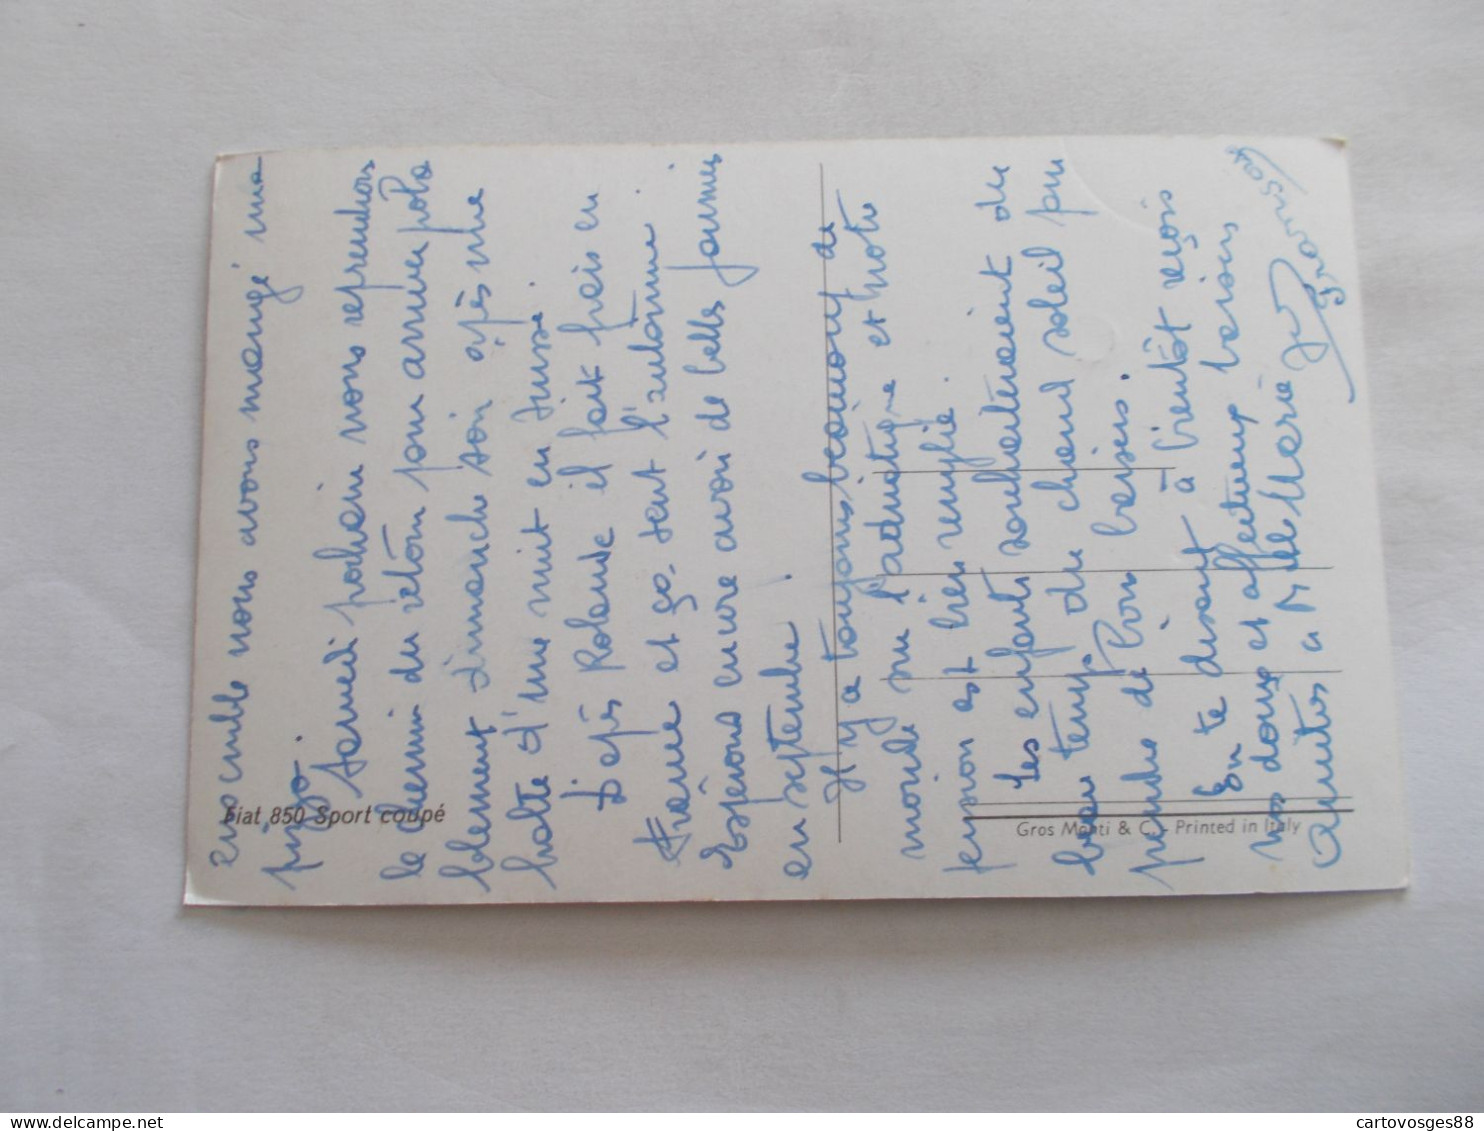 ensemble nous avons mangé une
pizza.
Samedi prochain nous reprendrons
le chemin du retour pour arriver proba
blement dimanche soir après une
halte d'une nuit en Suisse.
D'après Rolande il fait frais en
France et ça sent l'automne.
Espérons encore avoir de belles journées
en septembre.
Il y a toujours beaucoup de
monde sur l'adriatique et notre
pension est bien remplie.
Les enfants souhaiteraient du
beau temps du chaud soleil pour
prendre de bons bains.
En te disant à bientôt reçois
nos doux et affectueux baisers
Amitiés à Melle Marie
Fiat 850 Sport coupé
Gros Monti & C. - Printed in Italy
cartovosges88